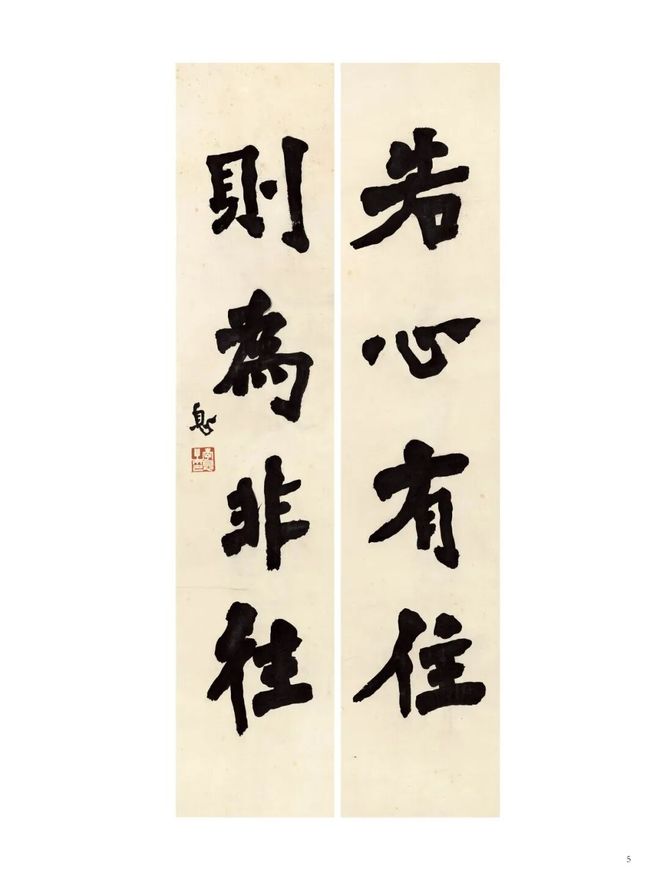 若心有住
則為非住
息